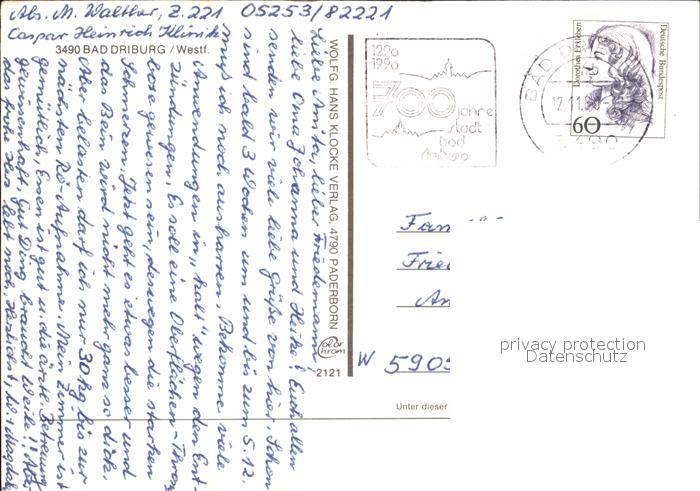 Abs. M. Walther, Z. 221 05253/82221
Caspar Heinrich Klinik
3490 BAD DRIBURG / Westf.
Liebe Anita, lieber Friedemann,
liebe Oma Johanna und Heike! Euch allen
senden wir viele liebe Grüße von hier. Schon
sind bald 3 Wochen um und bis zum 5.12.
muß ich noch ausharren. Bekomme viele
Anwendungen in "kalt" wegen den Ent-
zündungen. Es soll eine Oberflächen-Throm
bose gewesen sein, deswegen die starken
Schmerzen. Jetzt geht es etwas besser und
das Bein wird nicht mehr ganz so dick.
Aber belasten darf ich nur 30 kg bis zur
nächsten Rö-Aufnahme. Mein Zimmer ist
gemütlich, Essen ist gut u. die ärztl. Betreuung
gewissenhaft. Gut Ding braucht Weile!!
das frohe Herz lebt noch. Herzlichst, M.
WOLFG. HANS KLOCKE VERLAG, 4790 PADERBORN
color
chrom
2121
1290
1990
700 jahre
stadt
bad
driburg
BAD DRI
12.11.90
3490
Deutsche Bundespost
60
Fam
Frie
An
W 5905
Unter dieser
privacy protection
Datenschutz